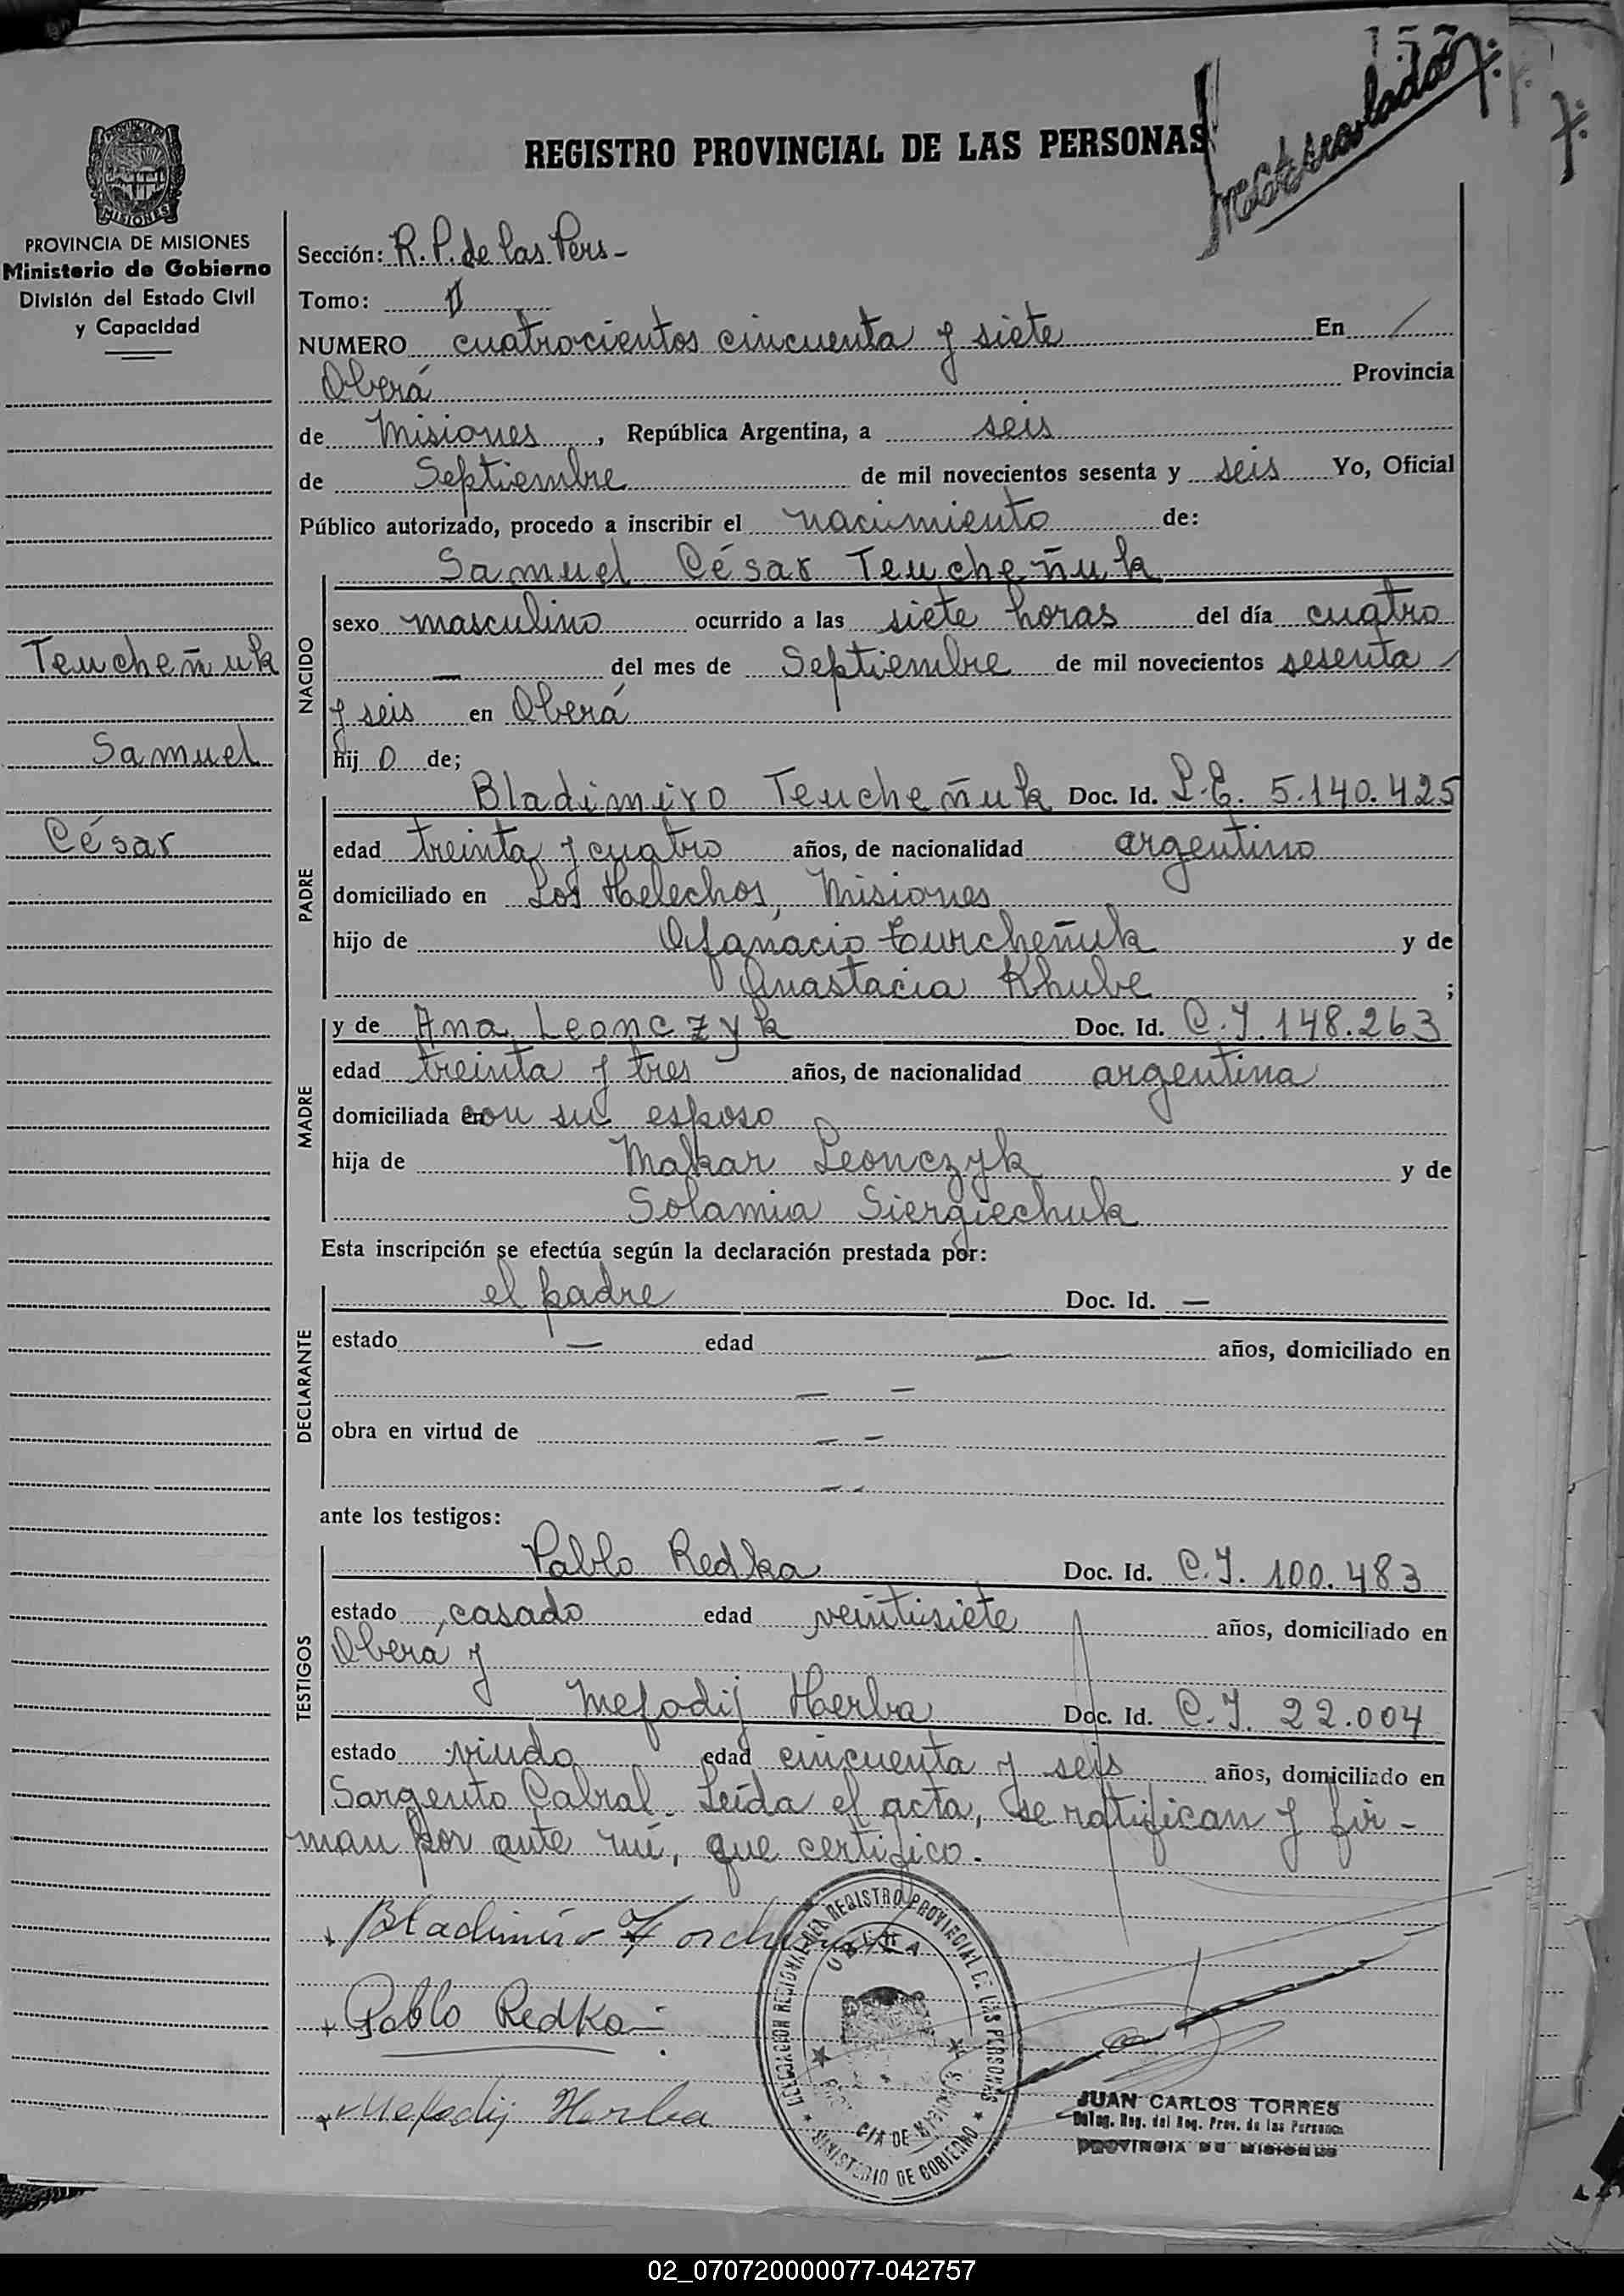 157
Matriculado
REGISTRO PROVINCIAL DE LAS PERSONAS
PROVINCIA DE MISIONES
MISIONES
PROVINCIA DE MISIONES
Ministerio de Gobierno
División del Estado Civil
y Capacidad
Teucheñuk
Samuel
César
Sección: R. P. de las Pers-
Tomo: II
NUMERO cuatrocientos cincuenta y siete En /
Oberá Provincia
de Misiones, República Argentina, a seis
de Septiembre de mil novecientos sesenta y seis Yo, Oficial
Público autorizado, procedo a inscribir el nacimiento de:
NACIDO
Samuel César Teucheñuk
sexo masculino ocurrido a las siete horas del día cuatro
— del mes de Septiembre de mil novecientos sesenta
y seis en Oberá
hij o de;
PADRE
Bladimiro Teucheñuk Doc. Id. L.E. 5.140.425
edad treinta y cuatro años, de nacionalidad argentino
domiciliado en Los Helechos, Misiones
hijo de Afanacio Turcheñuk y de
Anastacia Khube ;
MADRE
y de Ana Leonczyk Doc. Id. C.I. 148.263
edad treinta y tres años, de nacionalidad argentina
domiciliada en con su esposo
hija de Makar Leonczyk y de
Solamia Siergiechuk
Esta inscripción se efectúa según la declaración prestada por:
DECLARANTE
el padre Doc. Id. —
estado — edad — años, domiciliado en
— —
obra en virtud de — —
— —
ante los testigos:
TESTIGOS
Pablo Redka Doc. Id. C.I. 100.483
estado casado edad veintisiete años, domiciliado en
Oberá y
Mefodij Herba Doc. Id. C.I. 22.004
estado viudo edad cincuenta y seis años, domiciliado en
Sargento Cabral. Leída el acta, se ratifican y fir-
man por ante mí, que certifico.
Bladimiro
Pablo Redka
Mefodij Herba
DELEGACION REGIONAL DEL REGISTRO PROVINCIAL DE LAS PERSONAS
OBERA
PROVINCIA DE MISIONES
MINISTERIO DE GOBIERNO
JUAN CARLOS TORRES
Deleg. Reg. del Reg. Prov. de las Personas
PROVINCIA DE MISIONES
02_070720000077-042757